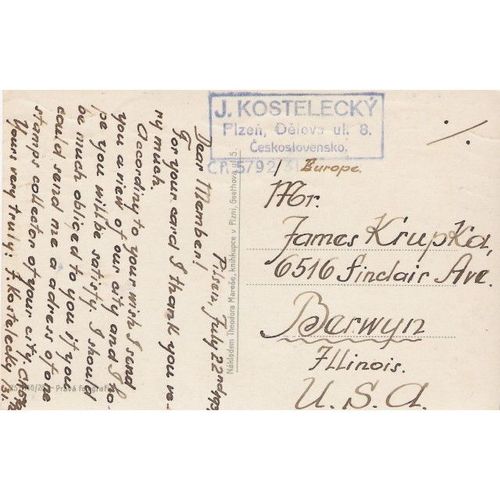 J. KOSTELECKÝ
Plzeň, Dělova ul. 8.
Československo.
Europe.
Mr.
James Krupka,
6516 Sinclair Ave.
Berwyn
Illinois.
U. S. A.
Plzen, July 22nd
Dear Member!
For your card I thank you ve-
ry much.
According to your wish I send
you a view of our city and I ho-
pe you will be satisfy. I should
be much obliged to you if you
could send me a adress of one
stamps collector of your city.
Your very truly: J. Kostelecký
Nákladem Theodora Mareše, knihkupce v Plzni, Goethova ul. 5.
Pravá fotografie